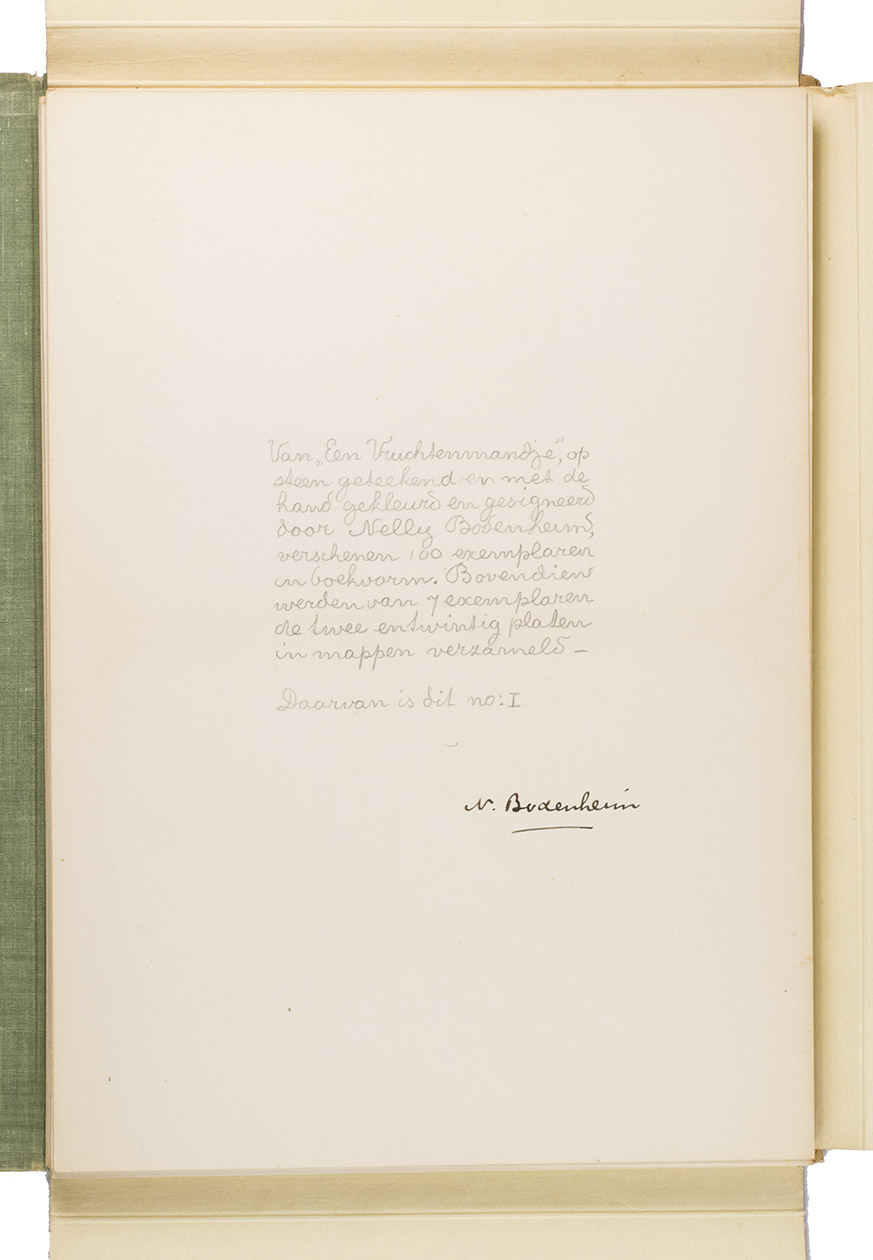 Van „Een Vruchtenmandje”, op
steen geteekend en met de
hand gekleurd en gesigneerd
door Nelly Bodenheim,
verschenen 100 exemplaren
in boekvorm. Bovendien
werden van 7 exemplaren
de twee entwintig platen
in mappen verzameld –
Daarvan is dit no: I
N. Bodenheim